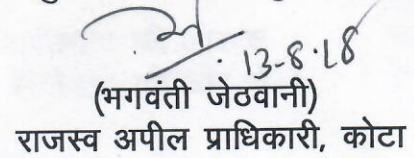 13-8-18
(भगवंती जेठवानी)
राजस्व अपील प्राधिकारी, कोटा